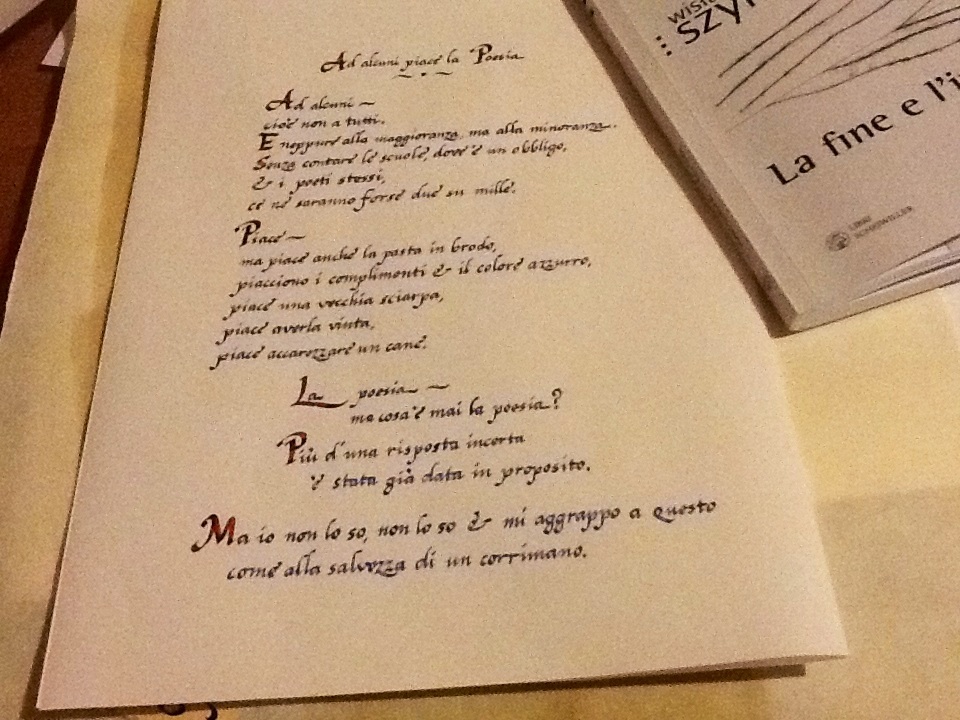 Ad alcuni piace la Poesia
Ad alcuni ~
cioè non a tutti.
E neppure alla maggioranza, ma alla minoranza.
Senza contare le scuole, dov'è un obbligo,
& i poeti stessi,
ce ne saranno forse due su mille.
Piace ~
ma piace anche la pasta in brodo,
piacciono i complimenti & il colore azzurro,
piace una vecchia sciarpa,
piace averla vinta,
piace accarezzare un cane.
La poesia ~
ma cos'è mai la poesia?
Più d'una risposta incerta
è stata già data in proposito.
Ma io non lo so, non lo so & mi aggrappo a questo
come alla salvezza di un corrimano.
La fine e l'i
LIBRI
SCHEIWILLER